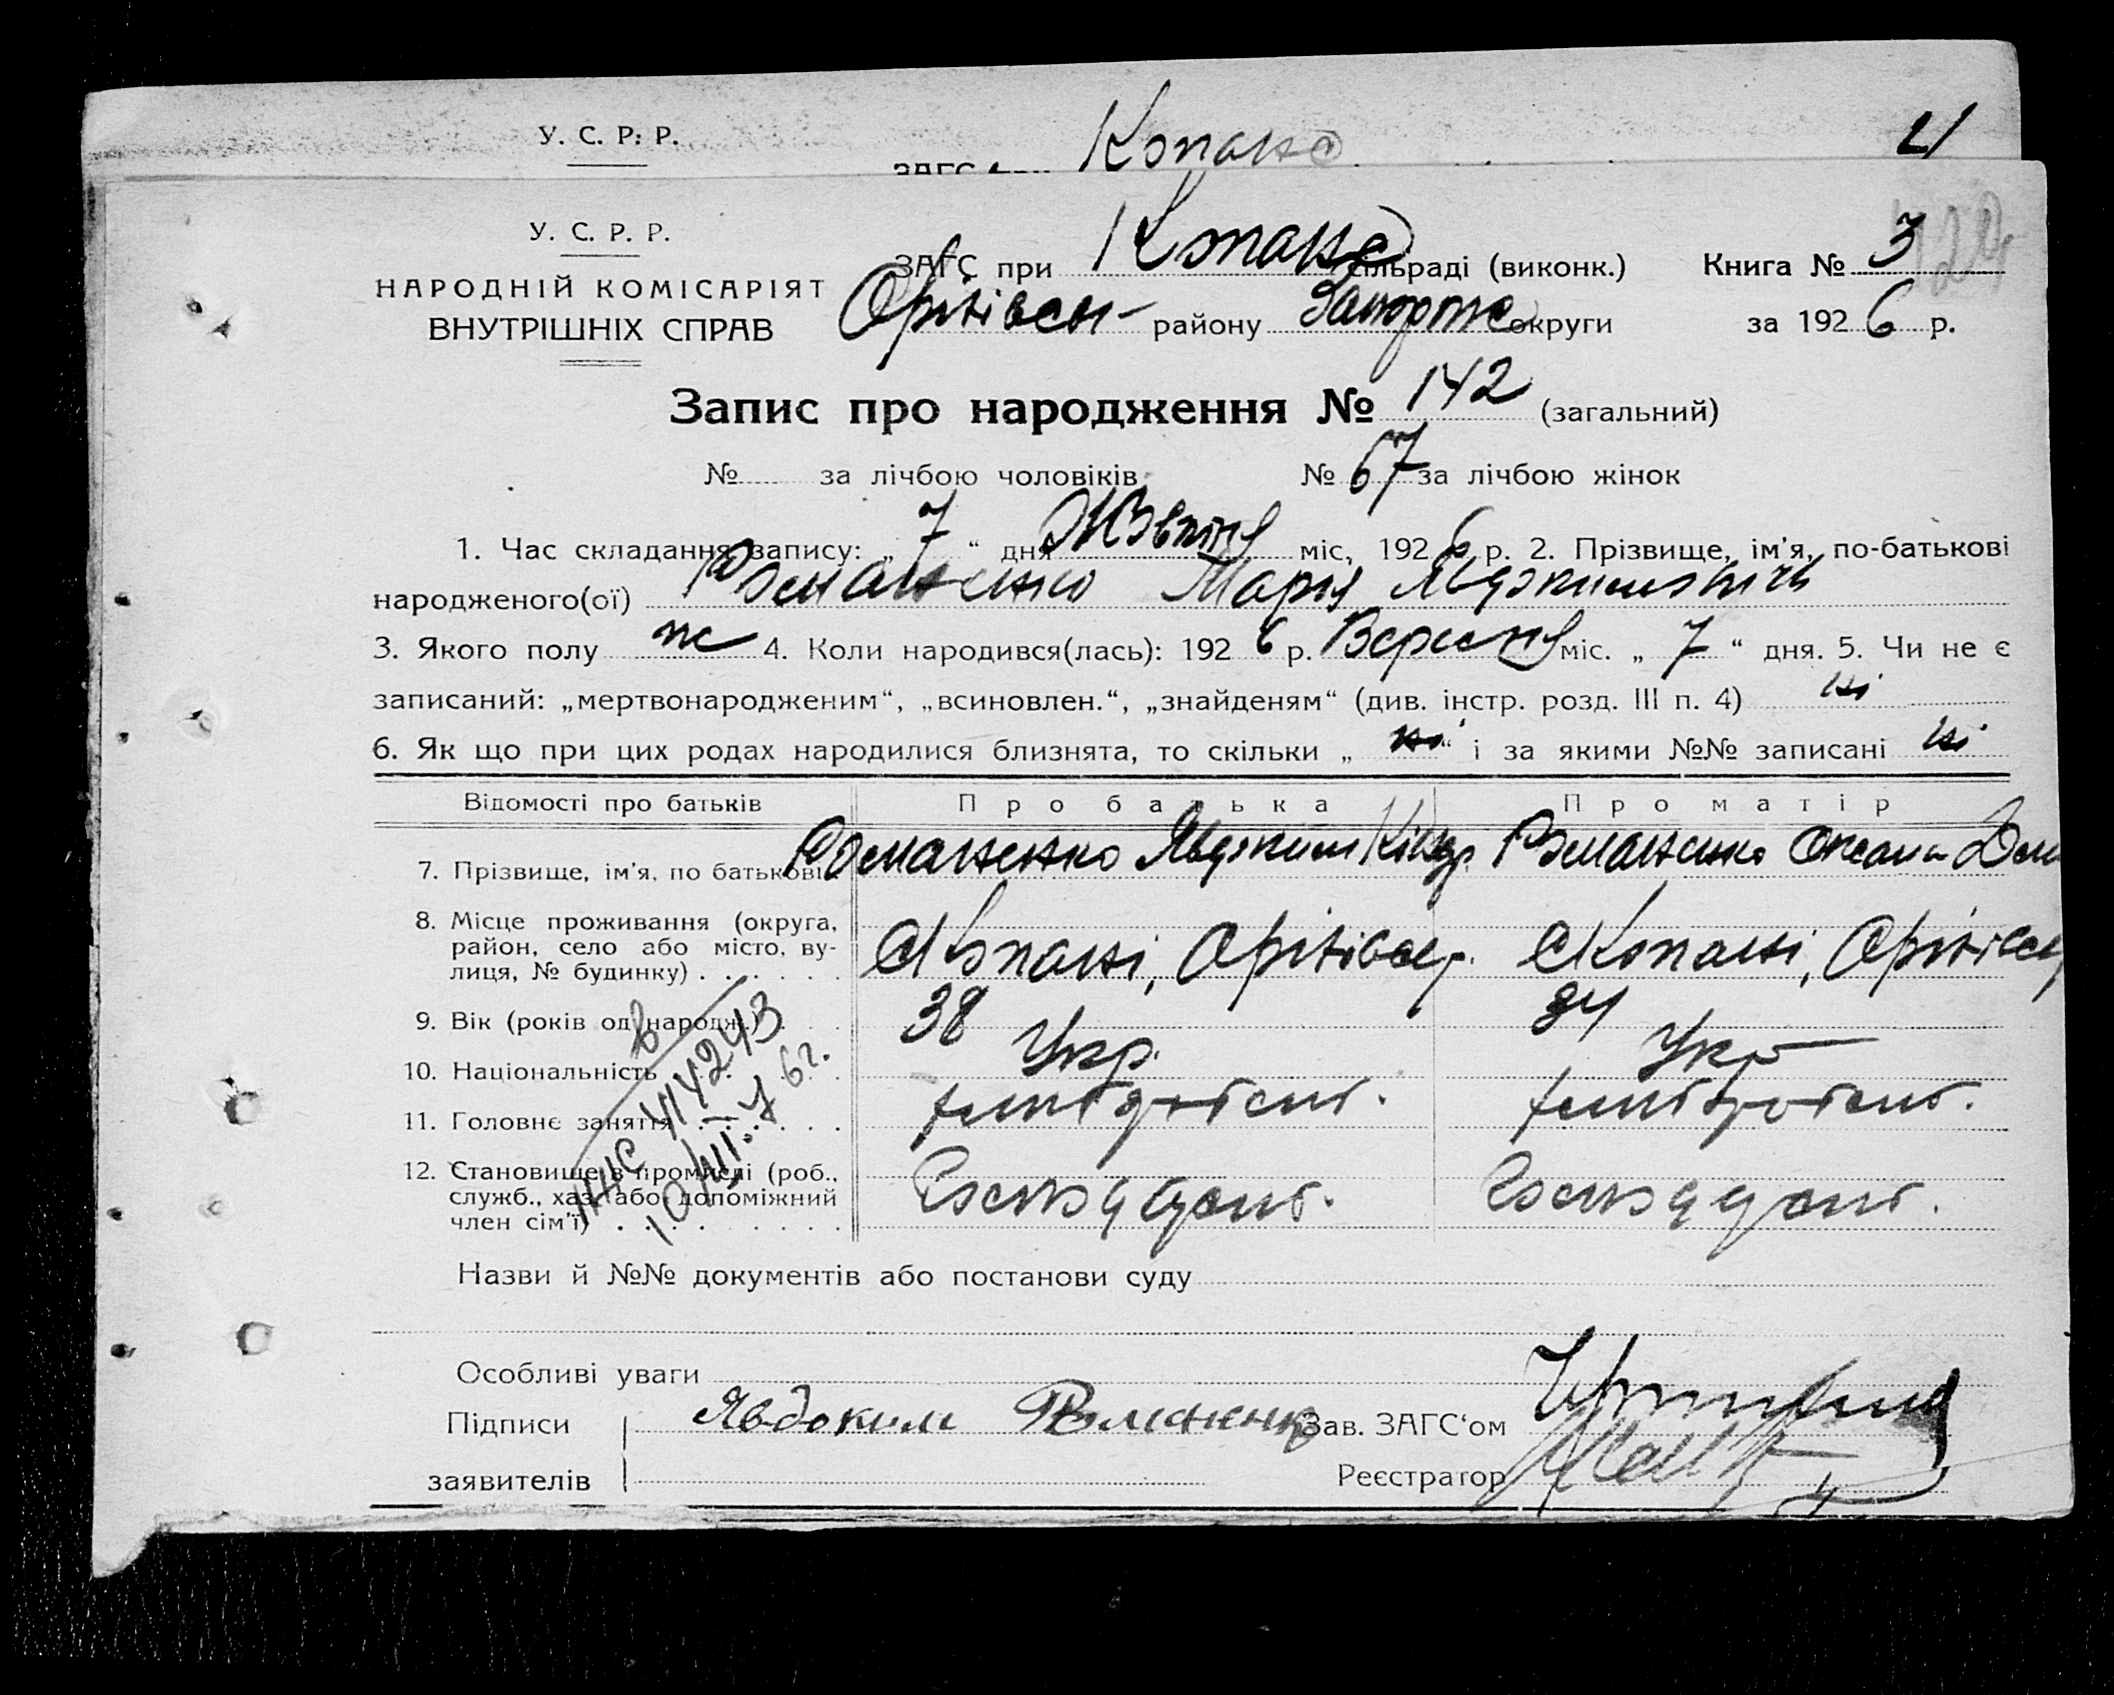 У. С. Р. Р.
ЗАГС при Копане
21
У. С. Р. Р.
НАРОДНІЙ КОМІСАРІЯТ
ВНУТРІШНІХ СПРАВ
ЗАГС при Копане сільраді (виконк.) Книга № 3
Оріхівськ району Запоріж округи за 1926 р.
Запис про народження № 142 (загальний)
№ за лічбою чоловіків № 67 за лічбою жінок
1. Час складання запису: „ 7 “ дня Жовтня міс, 1926 р. 2. Прізвище, ім'я, по-батькові
народженого(ої) Романенко Марія Явдокимовна
3. Якого полу ж 4. Коли народився(лась): 1926 р. Вересня міс. „ 7 “ дня. 5. Чи не є
записаний: „мертвонародженим“, „всиновлен.“, „знайденям“ (див. інстр. розд. III п. 4) ні
6. Як що при цих родах народилися близнята, то скільки „ ні “ і за якими №№ записані ні
Відомості про батьків Про батька Про матір
7. Прізвище, ім'я, по батькові Романенко Явдоким Романенко Оксана Дем
8. Місце проживання (округа,
район, село або місто, ву-
лиця, № будинку) . . . . . . С Копані, Оріхівськ р. С Копані, Оріхівськ
9. Вік (років од народж.) . . . 38 34
10. Національність Укр. Укр
11. Головнє заняття . . . . . .
12. Становище в промислі (роб.,
служб., хаз. або допоміжний
член сім'ї) . . . . . . . . .
10/III
Назви й №№ документів або постанови суду
Особливі уваги
Підписи Явдоким Романенко Зав. ЗАГС'ом
заявителів Реєстратор